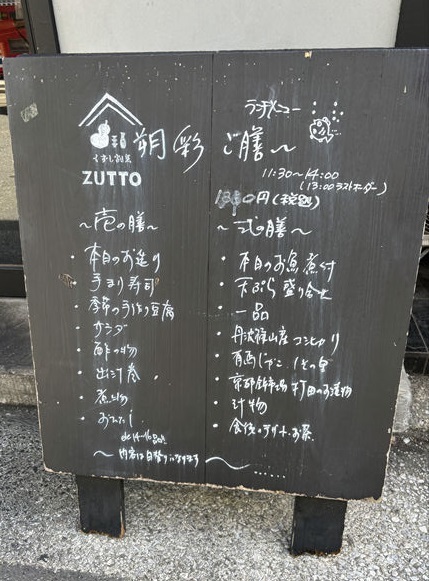 ランチメニュー
朔彩ご膳〜
くずし割烹
ZUTTO
11:30〜14:00
(13:00ラストオーダー)
円(税込)
〜壱の膳〜
・本日のお造り
・手まり寿司
・季節の手作り豆腐
・サラダ
・酢の物
・出汁巻
・煮物
・おひたし
〜弐の膳〜
・本日のお魚煮付
・天ぷら盛り合せ
・一品
・丹波篠山産コシヒカリ
・有馬じゃこ
・京都錦市場 打田のお漬物
・汁物
・食後のデザート、お茶
〜内容は日替りになります〜